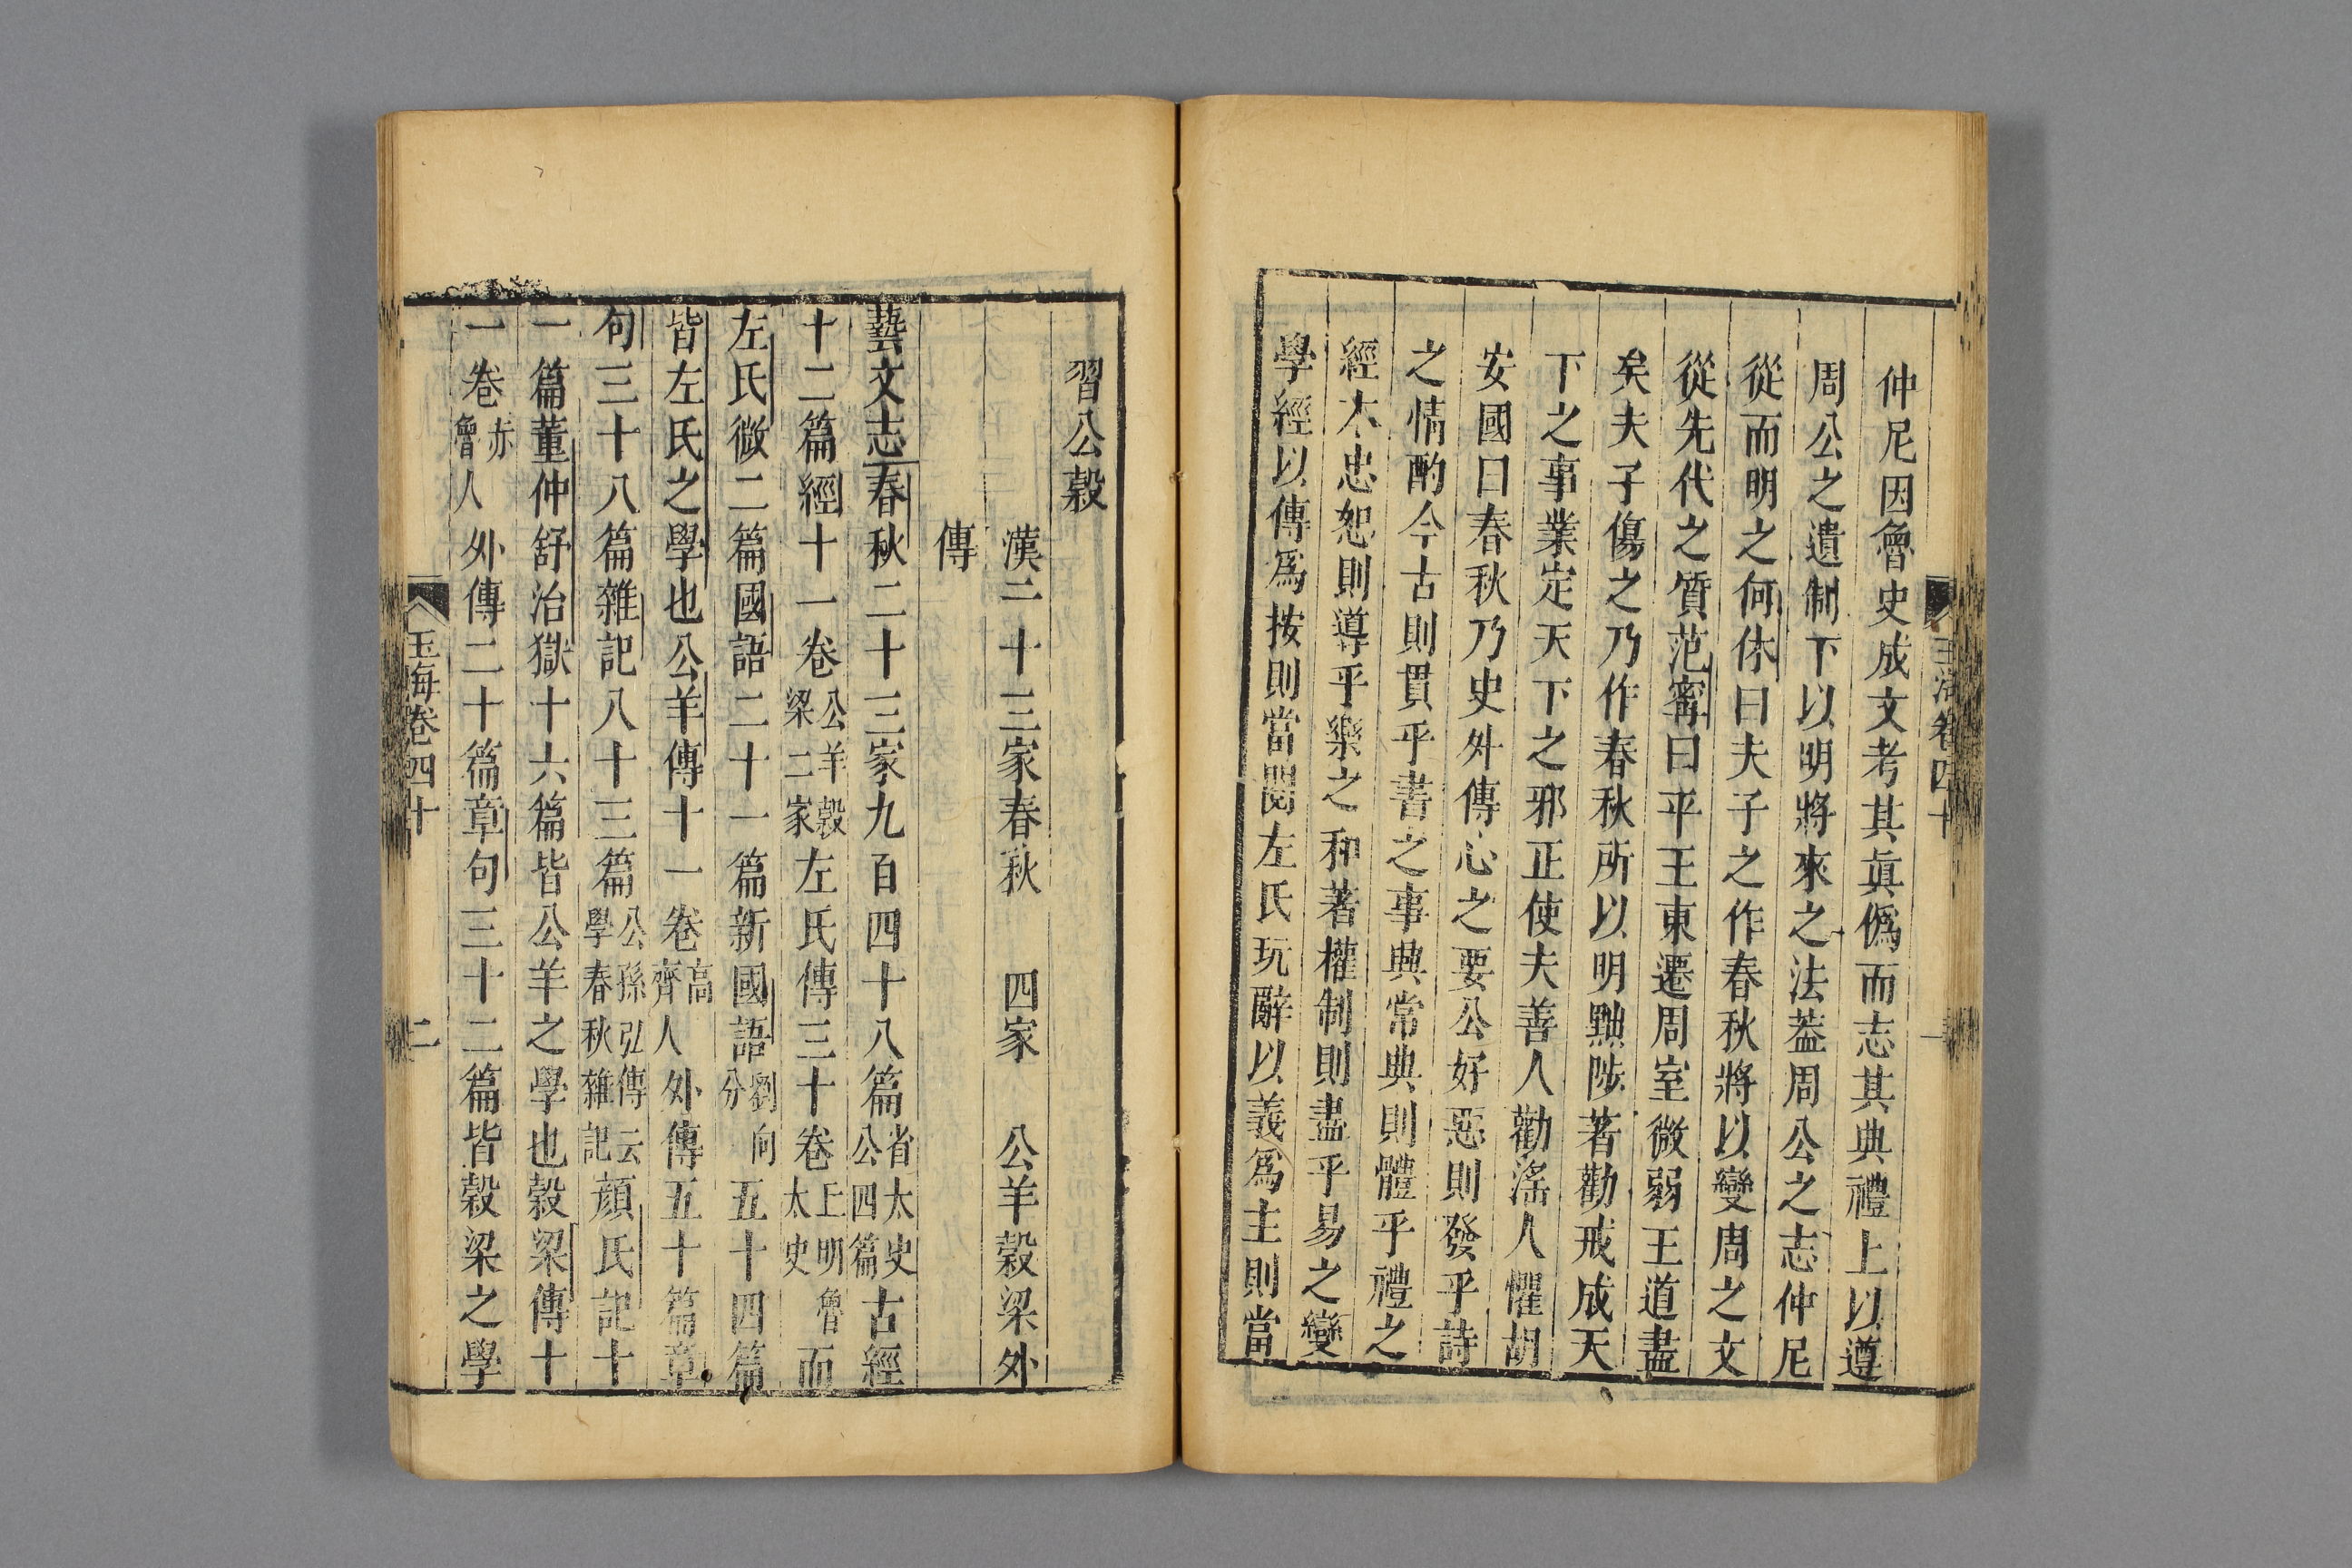 玉海卷四十
一
仲尼因魯史成文考其眞僞而志其典禮上以遵
周公之遺制下以明將來之法葢周公之志仲尼
從而明之何休曰夫子之作春秋將以變周之文
從先代之質范甯曰平王東遷周室微弱王道盡
矣夫子傷之乃作春秋所以明黜陟著勸戒成天
下之事業定天下之邪正使夫善人勸滛人懼胡
安國曰春秋乃史外傳心之要公好惡則發乎詩
之情酌今古則貫乎書之事典常典則體乎禮之
經本忠恕則導乎樂之和著權制則盡乎易之變
學經以傳爲按則當閱左氏玩辭以義爲主則當
習公穀
漢二十三家春秋　四家　公羊穀梁外
傳
藝文志春秋二十三家九百四十八篇省太史公四篇古經
十二篇經十一卷公羊穀梁二家左氏傳三十卷上明魯太史而
左氏微二篇國語二十一篇新國語劉向分五十四篇
皆左氏之學也公羊傳十一卷高齊人外傳五十篇章
句三十八篇雜記八十三篇公孫弘傳云學春秋雜記顏氏記十
一篇董仲舒治獄十六篇皆公羊之學也穀梁傳十
一卷赤魯人外傳二十篇章句三十二篇皆穀梁之學
玉海卷四十
二